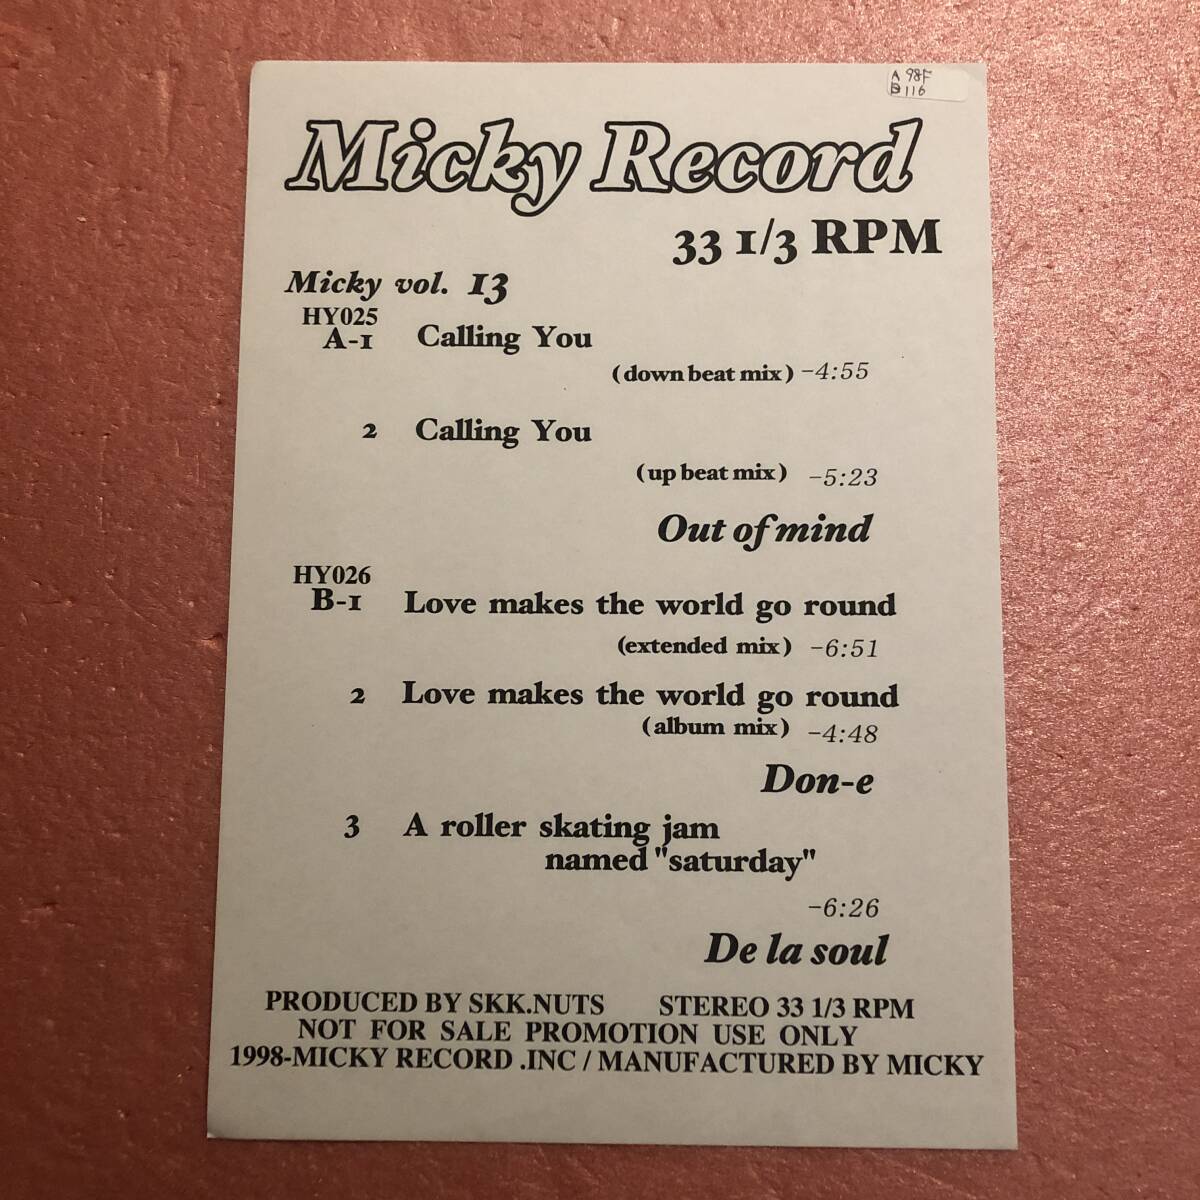 A 98F
B 116
Micky Record
33 1/3 RPM
Micky vol. 13
HY025
A-1 Calling You
(down beat mix) -4:55
2 Calling You
(up beat mix) -5:23
Out of mind
HY026
B-1 Love makes the world go round
(extended mix) -6:51
2 Love makes the world go round
(album mix) -4:48
Don-e
3 A roller skating jam
named "saturday"
-6:26
De la soul
PRODUCED BY SKK.NUTS STEREO 33 1/3 RPM
NOT FOR SALE PROMOTION USE ONLY
1998-MICKY RECORD .INC / MANUFACTURED BY MICKY